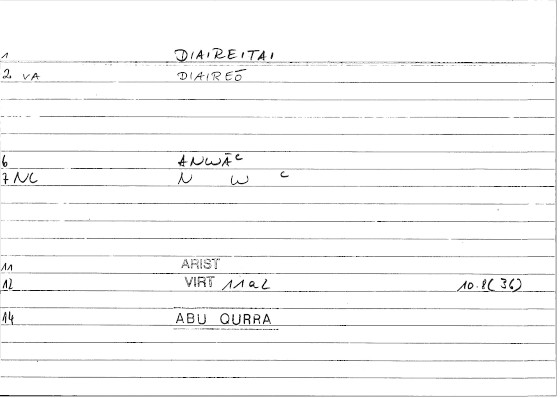 1 DIAIREITAI
2 VA DIAIREŌ
6 ANWĀC
7 NC N W C
11 ARIST
12 VIRT 11a2 10.8(36)
14 ABU QURRA